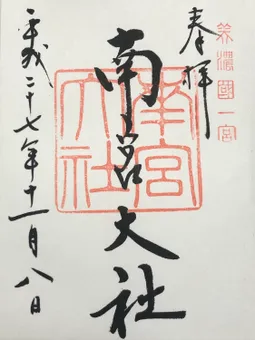 美濃國一宮
奉拝
南宮大社
南宮
大社
平成二十七年十一月八日